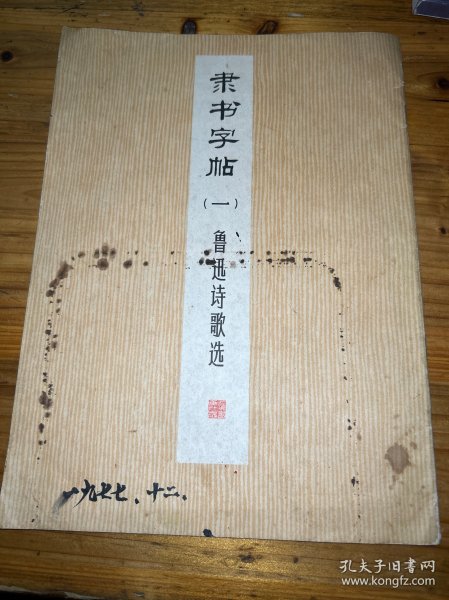 隶书字帖
(一)
鲁迅诗歌选
一九七七、十二、
孔夫子旧书网
www.kongfz.com